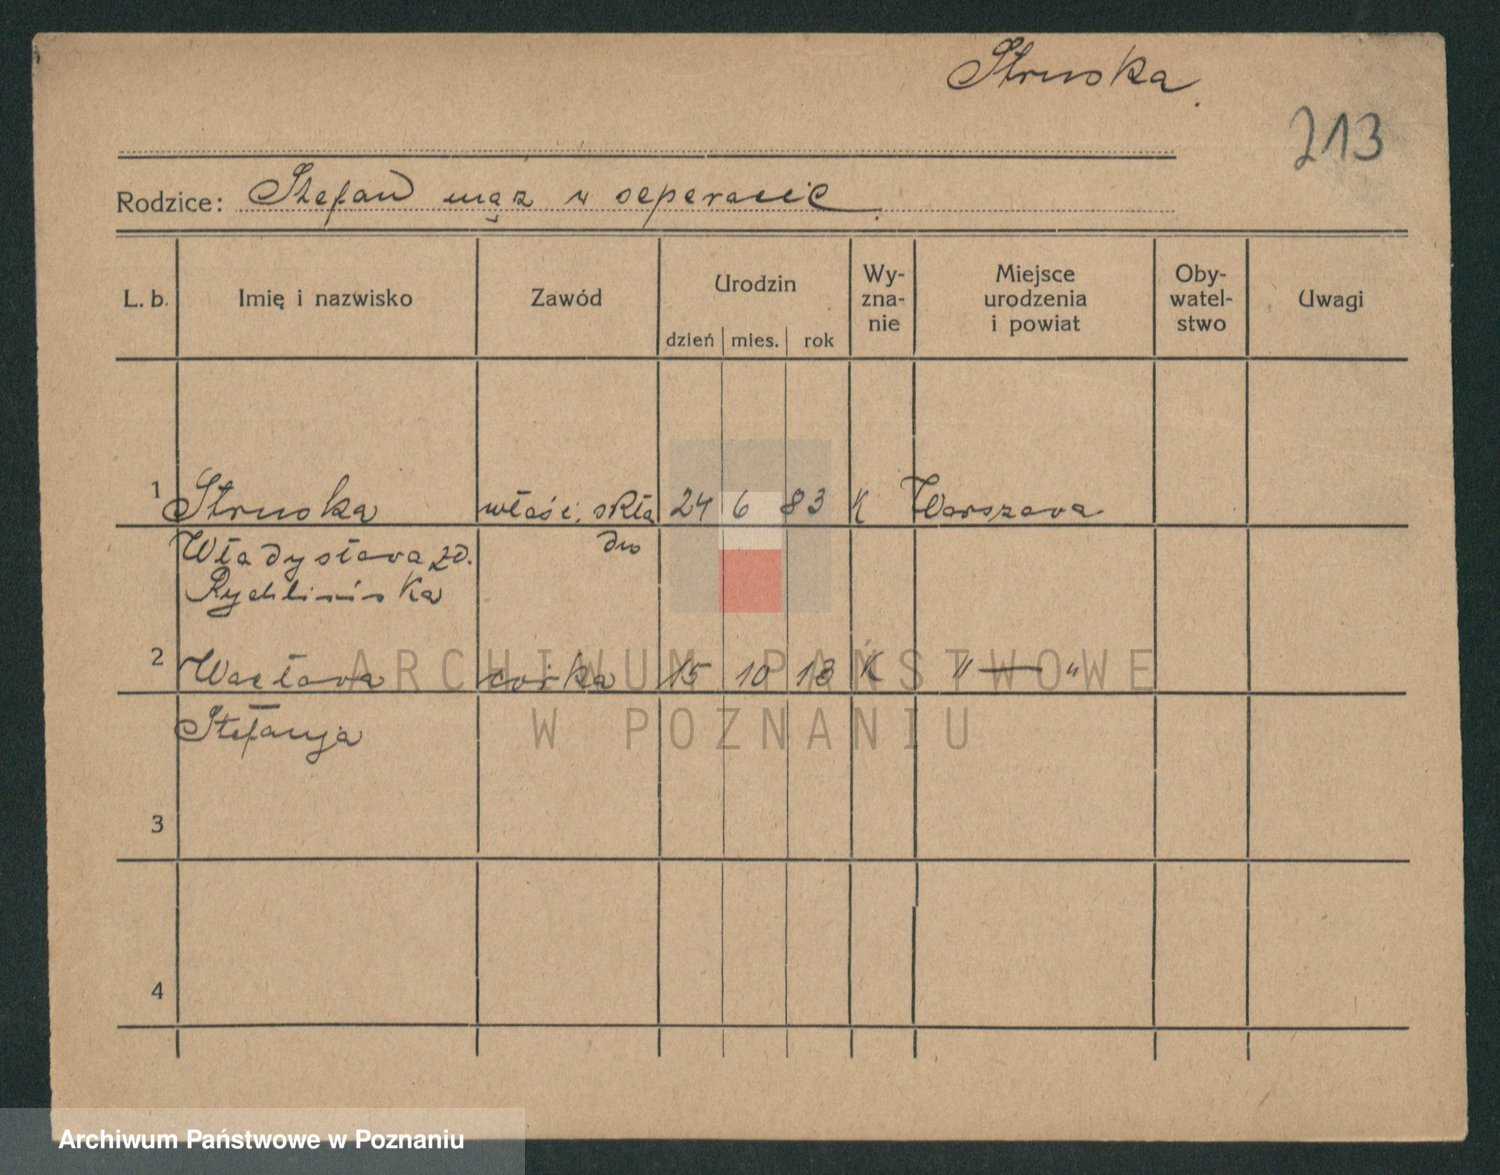 Struska.
213
Rodzice: Stefan mąż w seperacie
L. b. Imię i nazwisko Zawód Urodzin Wy-zna-nie Miejsce urodzenia i powiat Oby-watel-stwo Uwagi
dzień mies. rok
1 Struska właści. skła 24 6 83 K Warszawa
Władysława zd. du
Rychlińska
2 Wacława córka 15 10 13 K " — "
Stefanja
3
4
ARCHIWUM PAŃSTWOWE
W POZNANIU
Archiwum Państwowe w Poznaniu